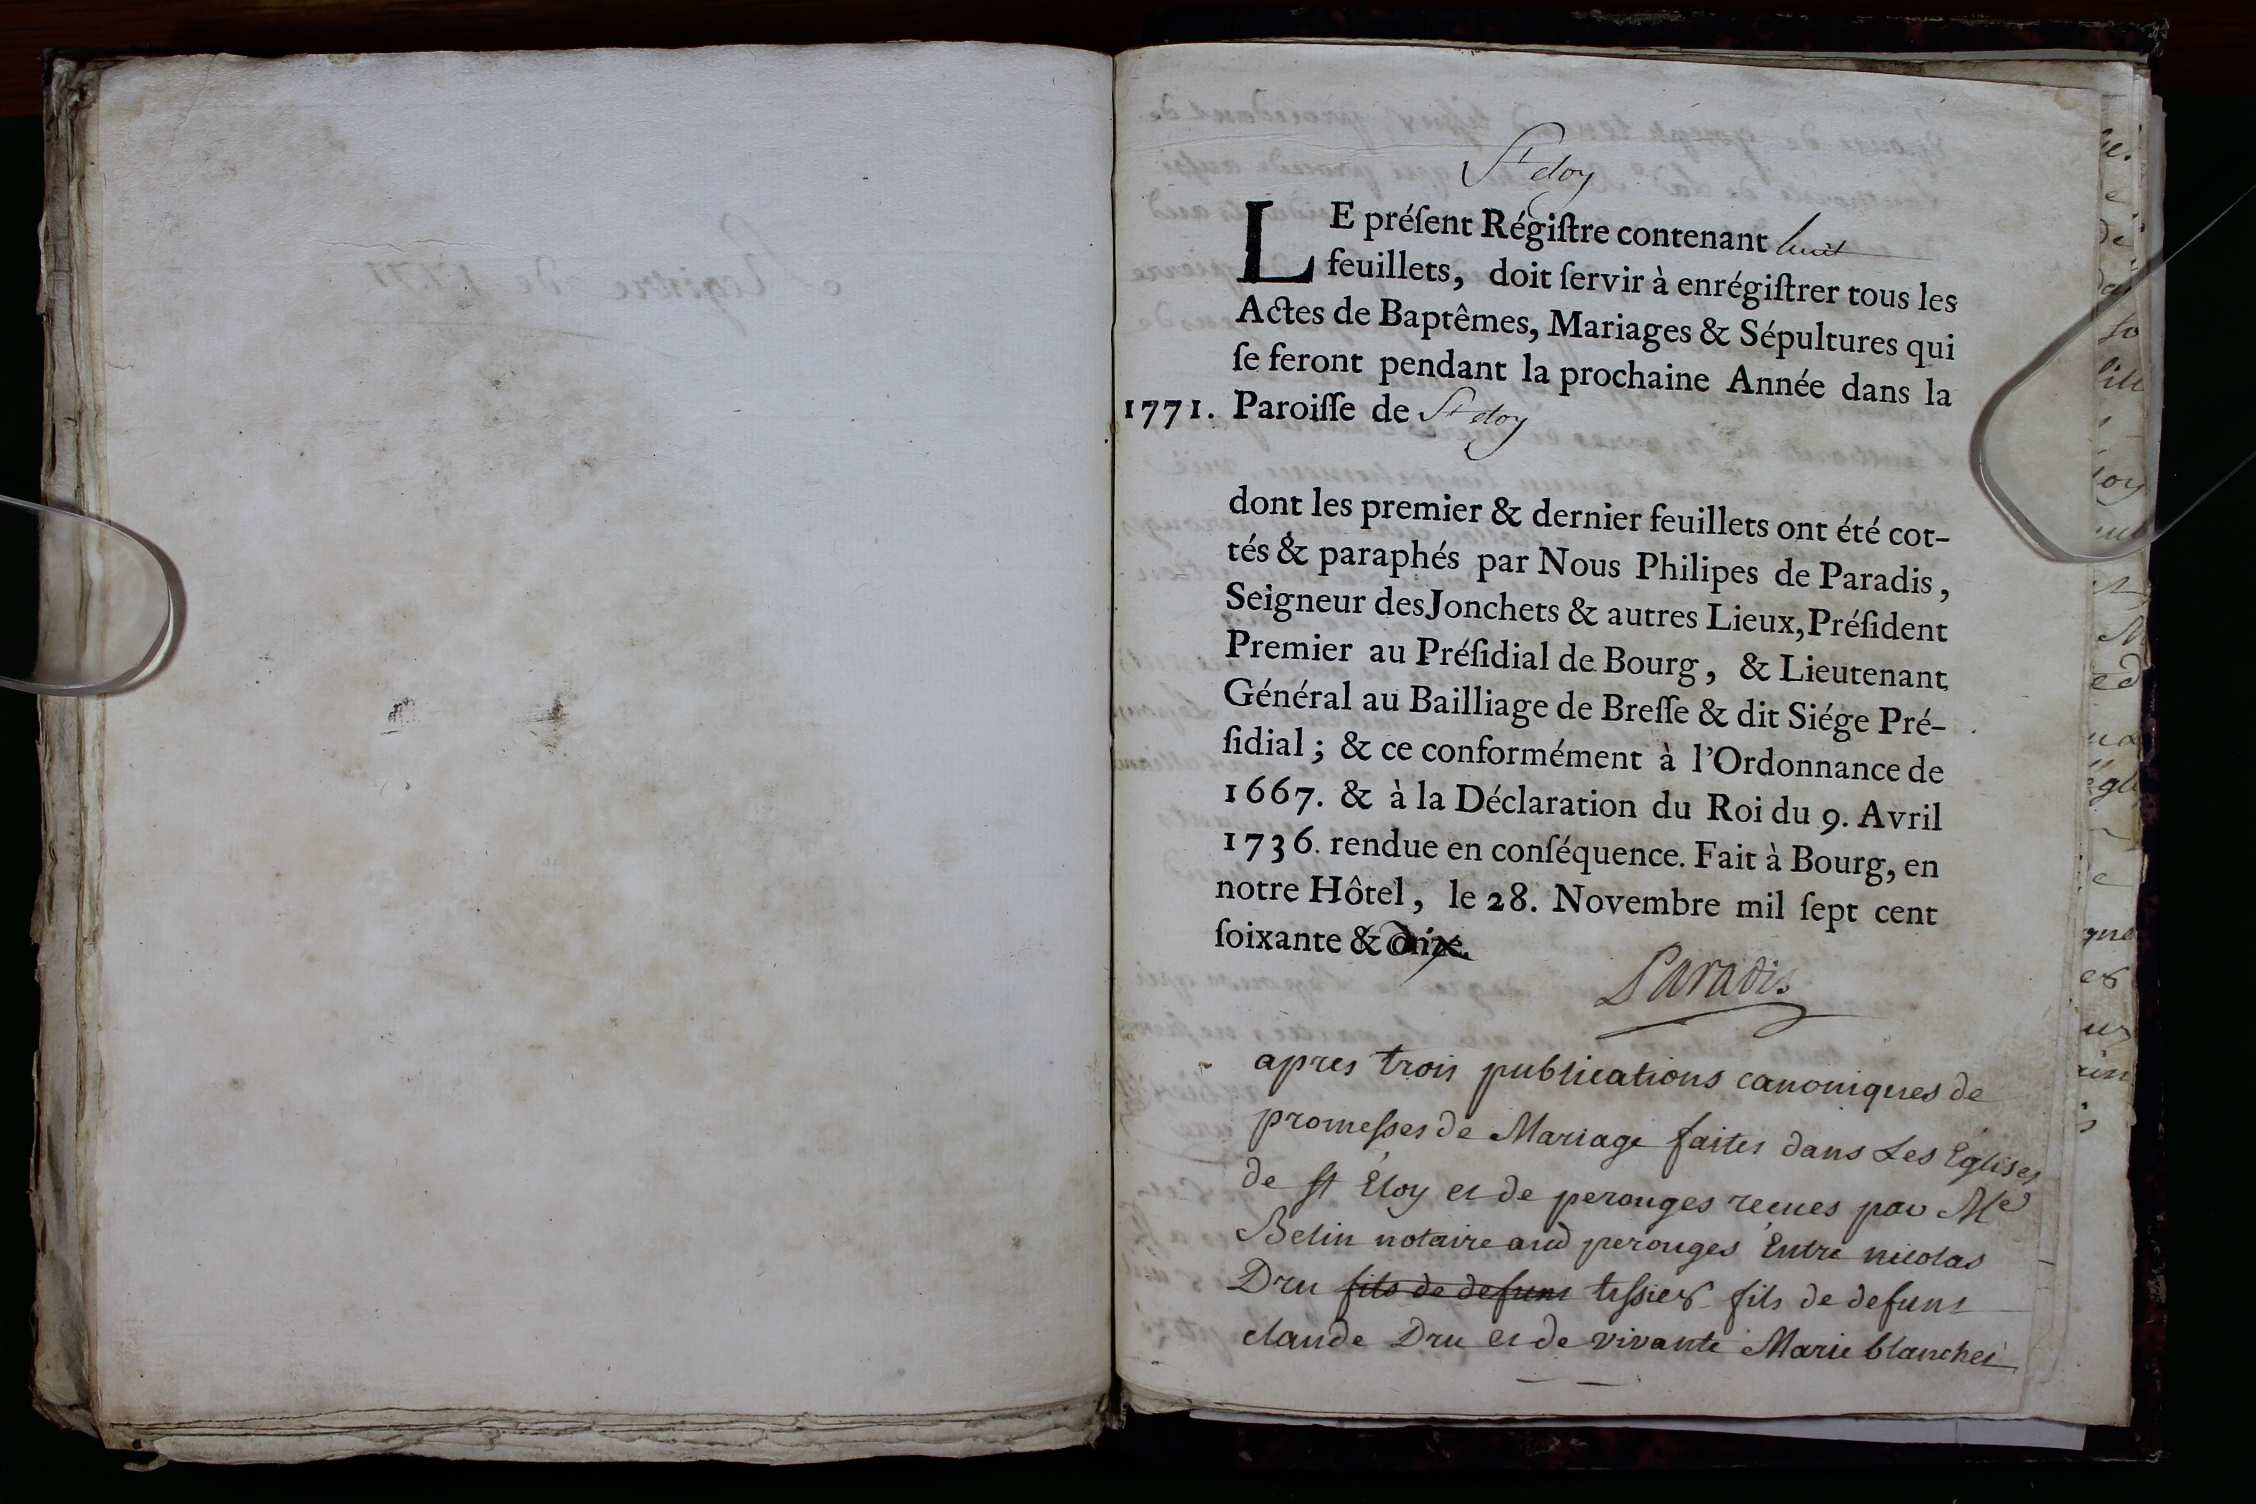 St eloy
LE préſent Régiſtre contenant huit
feuillets, doit ſervir à enrégiſtrer tous les
Actes de Baptêmes, Mariages & Sépultures qui
ſe feront pendant la prochaine Année dans la
1771. Paroiſſe de St eloy
dont les premier & dernier feuillets ont été cot-
tés & paraphés par Nous Philipes de Paradis,
Seigneur des Jonchets & autres Lieux, Préſident
Premier au Préſidial de Bourg, & Lieutenant
Général au Bailliage de Breſſe & dit Siége Pré-
ſidial; & ce conformément à l'Ordonnance de
1667. & à la Déclaration du Roi du 9. Avril
1736. rendue en conſéquence. Fait à Bourg, en
notre Hôtel, le 28. Novembre mil ſept cent
ſoixante & dix.
Paradis
apres trois publications canoniques de
promesses de Mariage faites dans Les Églises
de st Éloy et de perouges recues par Me
Belin notaire aud perouges Éntre nicolas
Dru fils de defunt tissier fils de defunt
claude Dru et de vivante Marie blanchet